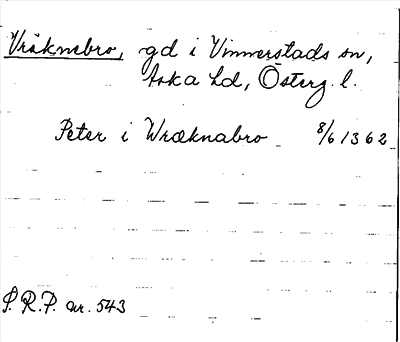 Vräknebro, gd i Vinnerstads sn,
Aska hd, Österg. l.
Peter i Wræknabro 8/6 1362
S.R.P. nr. 543